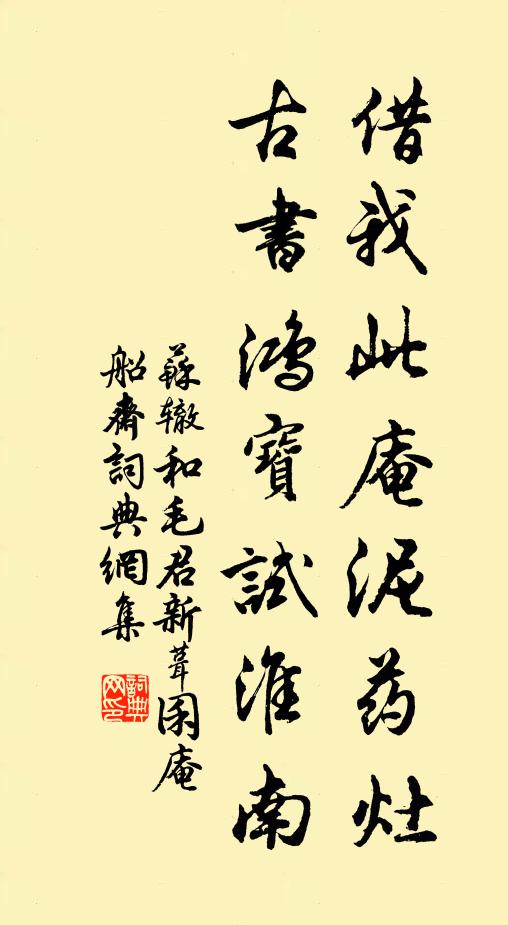 借我此庵泥药灶
古書鸿寶試淮南
蘇辙和毛君新葺困庵
船齋詞典網集
詞典
网印